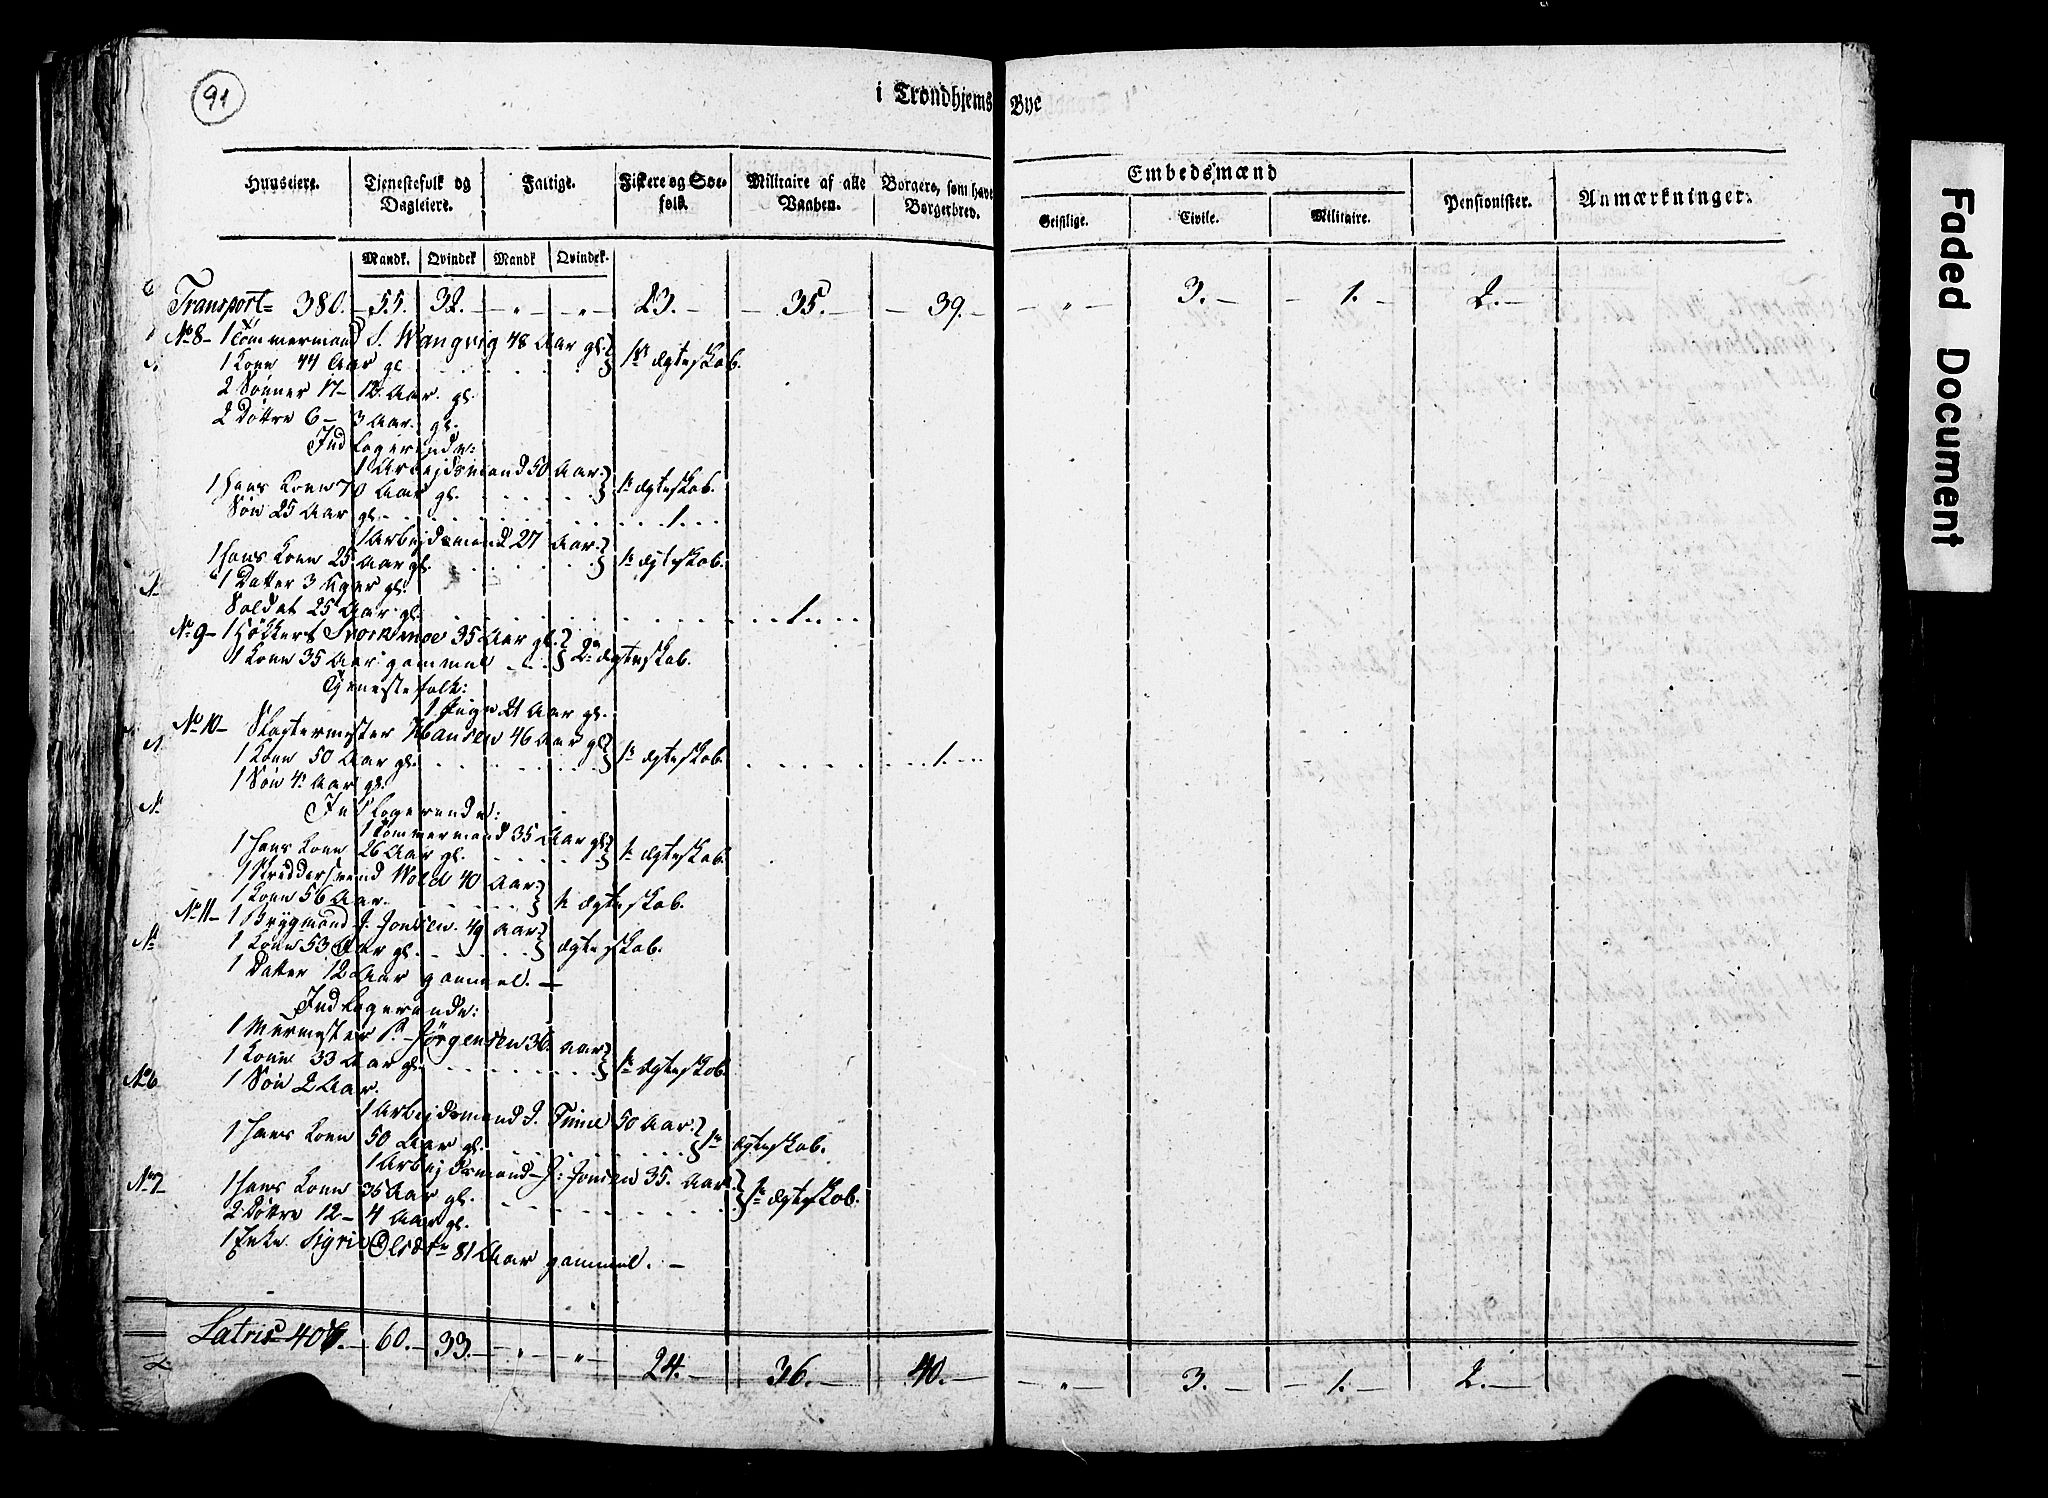 91
i Trondhjems Bye
Huuseiere.
Tjenestefolk og Dagleiere.
Fattige.
Fiskere og Søefolk.
Militaire af alle Vaaben.
Borgere, som have Borgerbrev.
Embedsmænd
Geistlige.
Civile.
Militaire.
Pensionister.
Anmærkninger.
Mandk. Qvindek Mandk Qvindek.
Transport 380. 55. 32. „ „ 23. 35. 39. „ 3. 1. 2.
No 8 1 Tömmermand S. Wangvig 48 Aar gl. } 1te Ægteskab.
1 Kone 44 Aar gl
2 Sönner 17 - 12 Aar gl.
2 Döttre 6 - 3 Aar gl.
Indlogerende:
1 Arbejdsmand 50 Aar } 1te Ægteskab.
1 Hans Kone 70 Aar gl.
Sön 25 Aar gl. 1.
1 Arbejdsmand 27 Aar } 1te Ægteskab.
1 Hans Kone 25 Aar gl.
1 Datter 3 Aar gl.
Soldat 25 Aar gl. 1.
No 9 1 Hökker Storkmoe 35 Aar gl. } 2n Ægteskab.
1 Kone 35 Aar gammel
Tjenestefolk:
1 Pige 21 Aar gl.
No 10 Slagtermester Hansen 46 Aar gl } 1te Ægteskab. 1.
1 Kone 50 Aar gl.
1 Sön 4 Aar gl.
Indlogerende:
1 Tömmermand 35 Aar gl } 1te Ægteskab.
1 Hans Kone 26 Aar gl.
1 Skreddersvend Wold 40 Aar } 1te Ægteskab.
1 Kone 56 Aar.
No 11 1 Brygmand J. Jonsen 49 Aar } Ægteskab.
1 Kone 53 Aar gl.
1 Datter 12 Aar gammel.
Indlogerende:
1 Murmester P. Jörgensen 36 Aar } 1te Ægteskab.
1 Kone 33 Aar gl.
1 Sön 2 Aar.
1 Arbejdsmand J. 50 Aar } 1te Ægteskab.
1 Hans Kone 50 Aar gl.
1 Arbejdsmand J: Jonsen 35. Aar } 1te Ægteskab.
1 Hans Kone 36 Aar gl.
2 Döttre 12 - 4 Aar gl.
1 Enke Sigri Olsdtr 81 Aar gammel.
Latris 407. 60. 33. „ „ 24. 36. 40. „ 3. 1. 2.
No 6
No 7
Faded Document